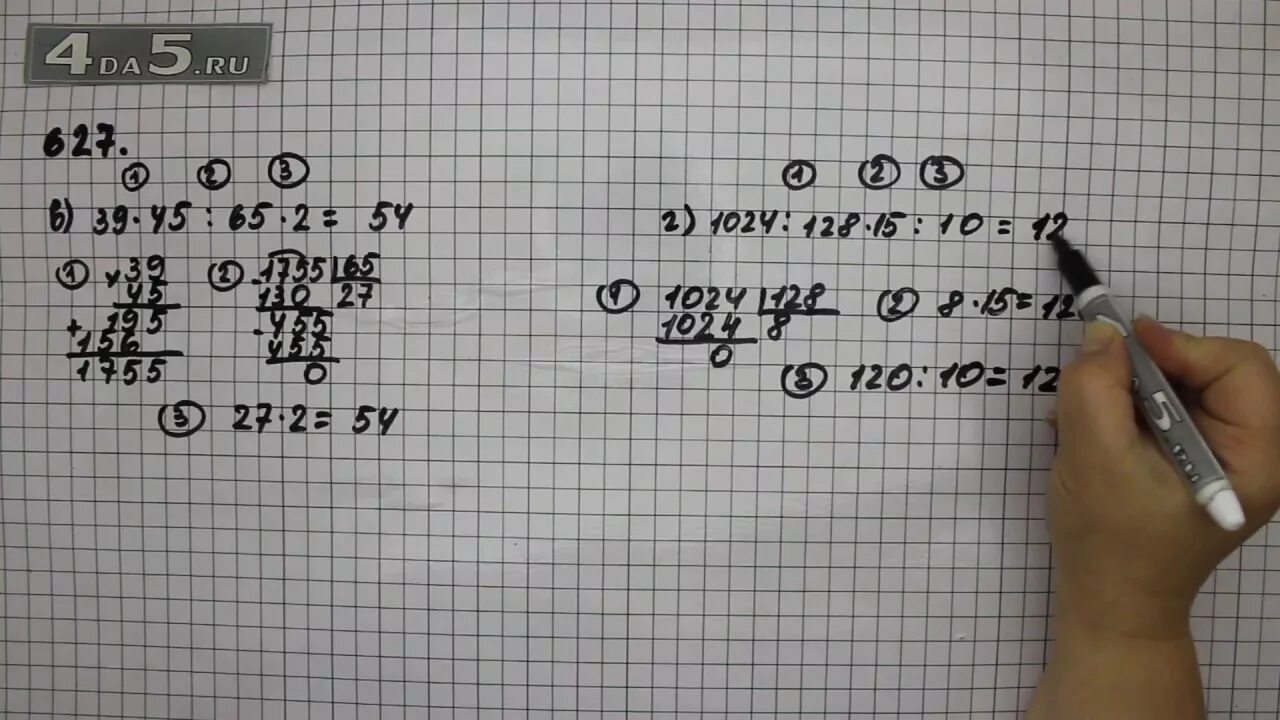 4DA5.RU
627.
① ② ③
в) 39·45 : 65·2 = 54
① × 39
45
+ 195
156
1755
② - 1755 | 65
130 27
- 455
455
0
③ 27·2 = 54
① ② ③
г) 1024 : 128·15 : 10 = 12
① 1024 | 128
1024 8
0
② 8·15 = 12
③ 120 : 10 = 12